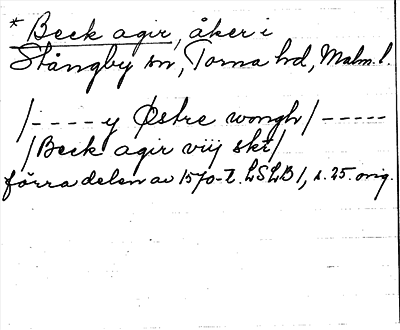 * Beck agir, åker i
Stångby sn, Torna hd, Malm. l.
/---- y Østre wongh/-----
/Beck agir viij skt/
förra delen av 1570-t. LSLB 1, s. 25. orig.